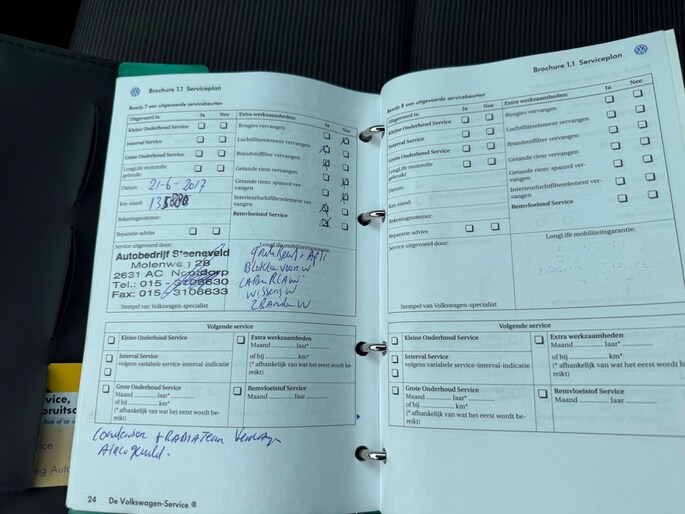 Brochure 1.1 Serviceplan
Bewijs 7 van uitgevoerde servicebeurten
Uitgevoerd is: Ja Nee
Kleine Onderhoud Service
Interval Service
Grote Onderhoud Service
LongLife motorolie gebruikt
Datum: 21-6-2017
Km-stand:
Rekeningnummer:
Reparatie-advies
Extra werkzaamheden: Ja Nee
Bougies vervangen
Luchtfilterelement vervangen
Brandstoffilter vervangen
Getande riem vervangen
Getande riem; spanrol ver-
vangen
Interieurluchtfilterelement ver-
vangen
Remvloeistof Service
Service uitgevoerd door:
Autobedrijf Steeneveld
Molenweg 28
2631 AC Nootdorp
Tel.: 015 - 3108630
Fax: 015 - 3108633
Stempel van Volkswagen-specialist
LongLife mobiliteitsgarantie:
Volgende service
Kleine Onderhoud Service
Interval Service
volgens variabele service-interval-indicatie
Grote Onderhoud Service
Maand .......... Jaar*
of bij .......... km*
(* afhankelijk van wat het eerst wordt be-
reikt)
Extra werkzaamheden
Maand .......... Jaar*
of bij .......... km*
(* afhankelijk van wat het eerst wordt be-
reikt)
Remvloeistof Service
Maand .......... Jaar
24 De Volkswagen-Service ®
Brochure 1.1 Serviceplan
Bewijs 8 van uitgevoerde servicebeurten
Uitgevoerd is: Ja Nee
Kleine Onderhoud Service
Interval Service
Grote Onderhoud Service
LongLife motorolie
gebruikt
Datum:
Km-stand:
Rekeningnummer:
Reparatie-advies
Extra werkzaamheden: Ja Nee
Bougies vervangen
Luchtfilterelement vervangen
Brandstoffilter vervangen
Getande riem vervangen
Getande riem; spanrol ver-
vangen
Interieurluchtfilterelement ver-
vangen
Remvloeistof Service
Service uitgevoerd door:
Stempel van Volkswagen-specialist
LongLife mobiliteitsgarantie:
Volgende service
Kleine Onderhoud Service
Interval Service
volgens variabele service-interval-indicatie
Grote Onderhoud Service
Maand .......... Jaar*
of bij .......... km*
(* afhankelijk van wat het eerst wordt be-
reikt)
Extra werkzaamheden
Maand .......... Jaar*
of bij .......... km*
(* afhankelijk van wat het eerst wordt be-
reikt)
Remvloeistof Service
Maand .......... Jaar